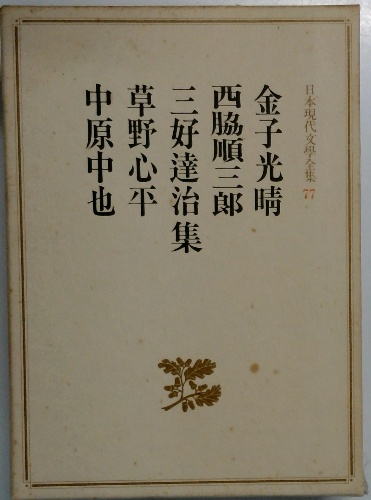 日本現代文學全集 77
金子光晴
西脇順三郎
三好達治集
草野心平
中原中也